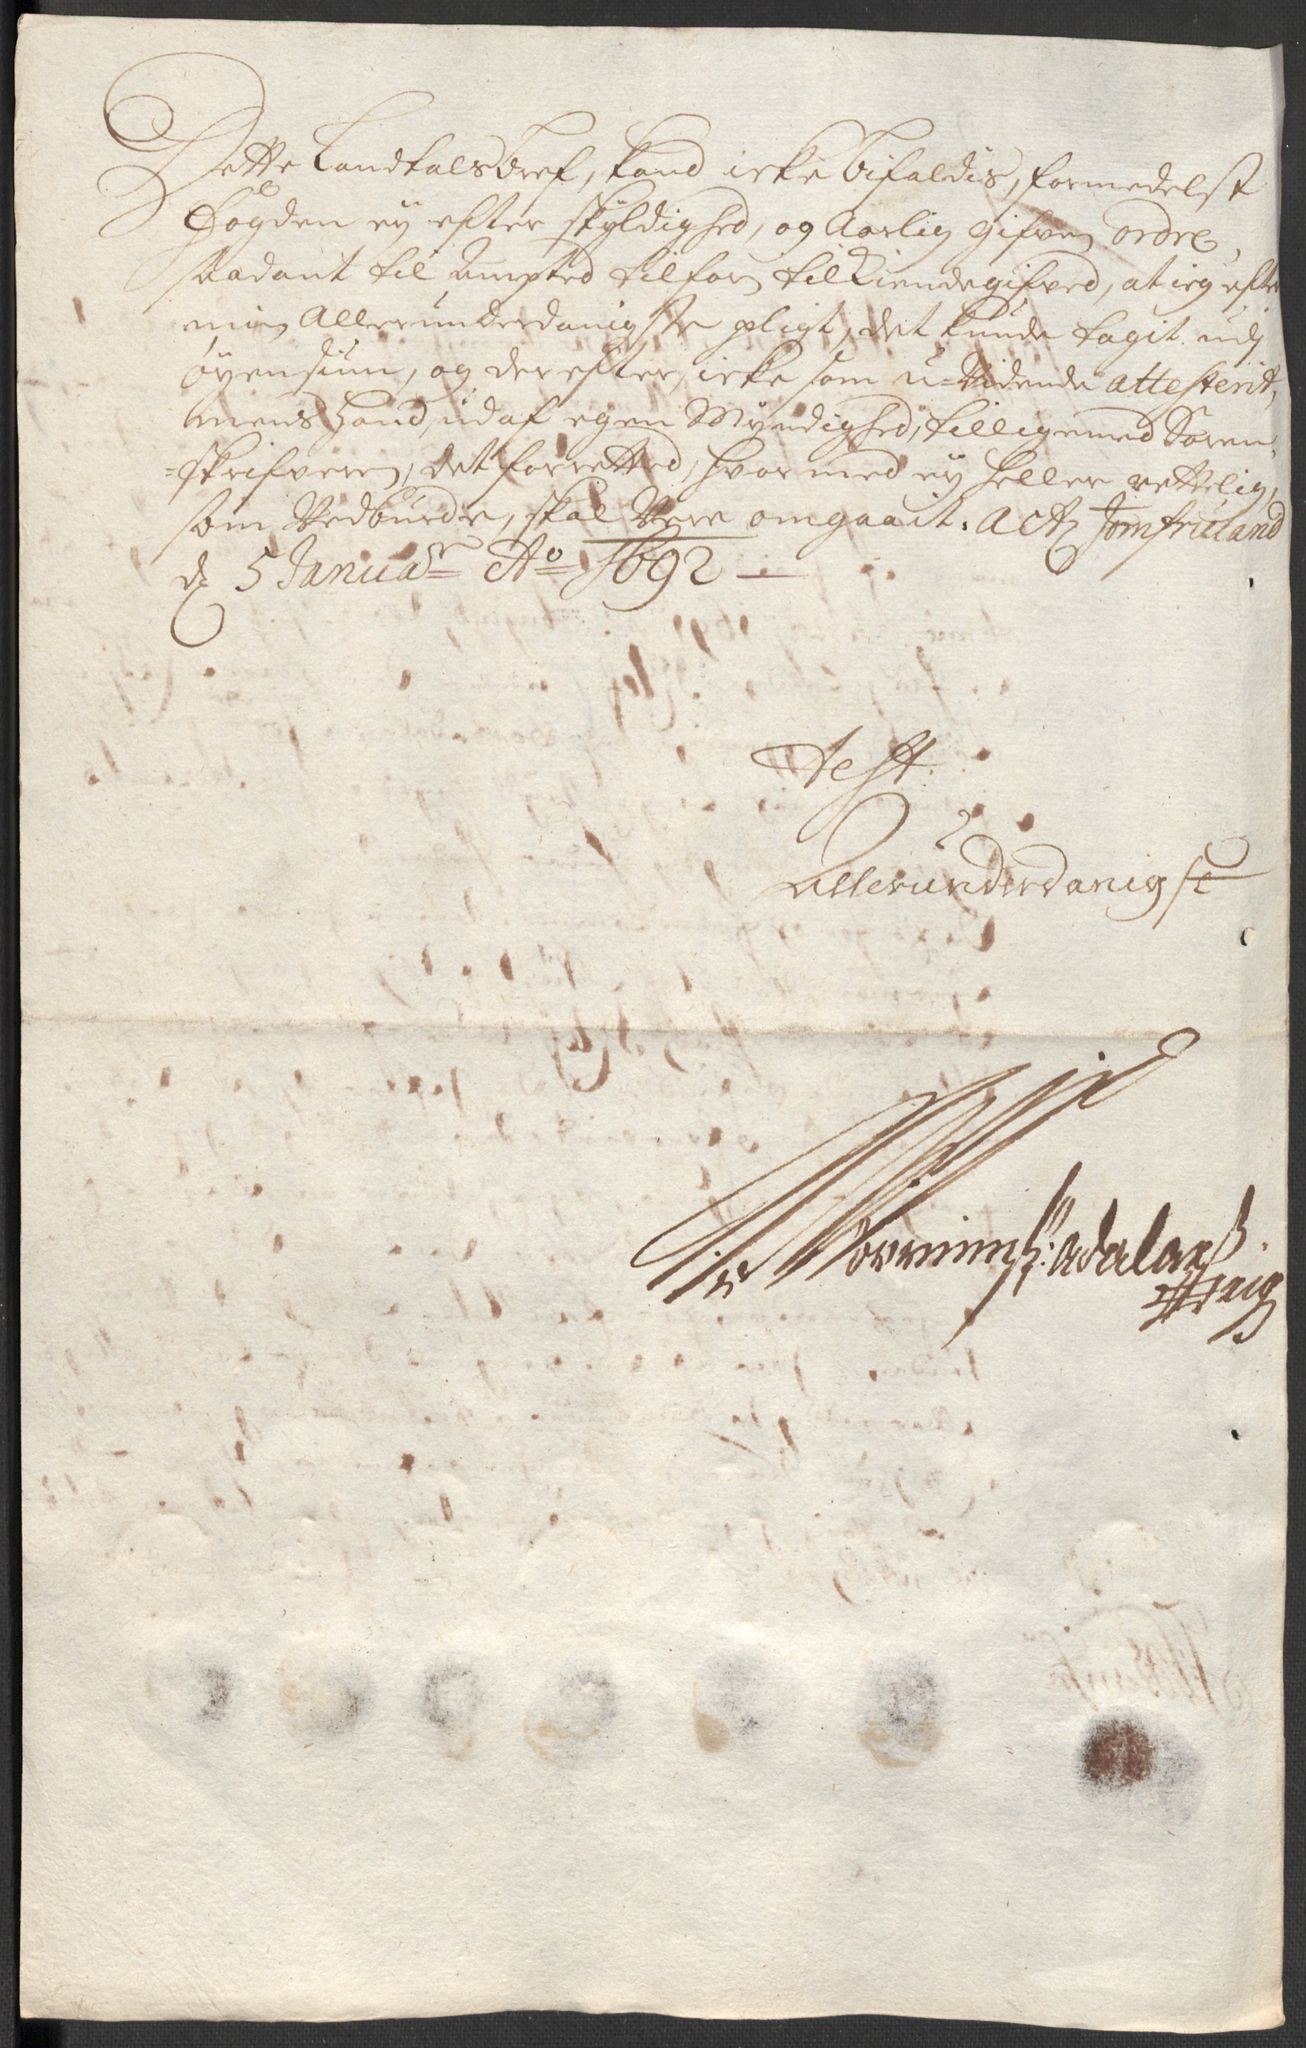 Dette Landfalsbref, kand icke bifaldis, formedelst
fogden ey efter skyldighed, og Aarlig gifven ordre,
saadant til Ampted tilforn tilkiendegifved, at ieg efter
min Allerunderdanigste pligt, det kunde tagit udj
øyensium, og der efter, icke som u-vidende attesterit,
mens hand, ud af egen Myndighed, tilligemed Soren-
=skrifveren, det forretted, hvormed ey heller rettelig,
som vedburde, skal vere omgaait. Act Jomfruland
d 5 Januar Ao 1692
Test.
Allerunderdanigst